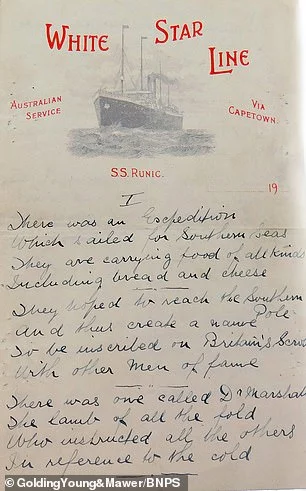 WHITE STAR LINE
AUSTRALIAN SERVICE
VIA CAPETOWN.
S.S. RUNIC.
19
I
There was an Expedition
Which sailed for Southern Seas
They are carrying food of all kinds
Including bread and cheese
They hoped to reach the Southern
Pole
And thus create a name
To be inscribed on Britain's Scroll
With other men of fame
There was one called Dr Marshall
The lamb of all the fold
Who instructed all the others
In reference to the cold
© GoldingYoung&Mawer/BNPS